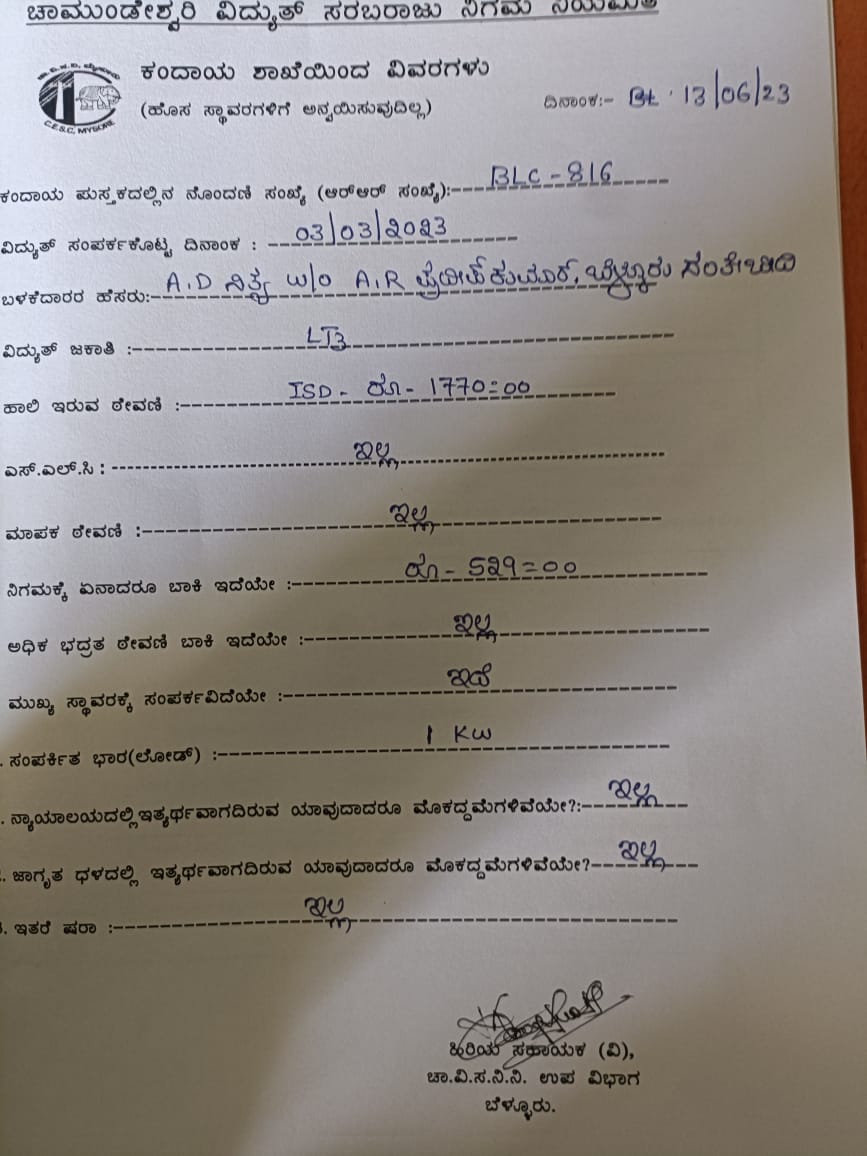 ಚಾಮುಂಡೇಶ್ವರಿ ವಿದ್ಯುತ್ ಸರಬರಾಜು ನಿಗಮ ನಿಯಮಿತ
ಕಂದಾಯ ಶಾಖೆಯಿಂದ ವಿವರಗಳು
(ಹೊಸ ಸ್ಥಾವರಗಳಿಗೆ ಅನ್ವಯಿಸುವುದಿಲ್ಲ) ದಿನಾಂಕ:- Bt. 13/06/23
C.E.S.C, MYSORE
ಕಂದಾಯ ಪುಸ್ತಕದಲ್ಲಿನ ನೊಂದಣಿ ಸಂಖ್ಯೆ (ಆರ್ಆರ್ ಸಂಖ್ಯೆ):- BLC - 816
ವಿದ್ಯುತ್ ಸಂಪರ್ಕಕೊಟ್ಟ ದಿನಾಂಕ : 03/03/೨೦೨3
ಬಳಕೆದಾರರ ಹೆಸರು:- A.D ನಿತ್ಯ W/O A.R ಪ್ರದೀಪ್ ಕುಮಾರ್, ಬೆಳ್ಳೂರು ಸಂತೇಬೀದಿ
ವಿದ್ಯುತ್ ಜಕಾತಿ :- LT3
ಹಾಲಿ ಇರುವ ಠೇವಣಿ :- ISD - ರೂ - 1770=00
ಎಸ್.ಎಲ್.ಸಿ : ಇಲ್ಲ
ಮಾಪಕ ಠೇವಣಿ :- ಇಲ್ಲ
ನಿಗಮಕ್ಕೆ ಏನಾದರೂ ಬಾಕಿ ಇದೆಯೇ :- ರೂ - 529=00
ಅಧಿಕ ಭದ್ರತ ಠೇವಣಿ ಬಾಕಿ ಇದೆಯೇ :- ಇಲ್ಲ
ಮುಖ್ಯ ಸ್ಥಾವರಕ್ಕೆ ಸಂಪರ್ಕವಿದೆಯೇ :- ಇದೆ
. ಸಂಪರ್ಕಿತ ಭಾರ(ಲೋಡ್) :- 1 KW
. ನ್ಯಾಯಾಲಯದಲ್ಲಿ ಇತ್ಯರ್ಥವಾಗದಿರುವ ಯಾವುದಾದರೂ ಮೊಕದ್ದಮೆಗಳಿವೆಯೇ?:- ಇಲ್ಲ
. ಜಾಗೃತ ಧಳದಲ್ಲಿ ಇತ್ಯರ್ಥವಾಗದಿರುವ ಯಾವುದಾದರೂ ಮೊಕದ್ದಮೆಗಳಿವೆಯೇ?- ಇಲ್ಲ
. ಇತರೆ ಷರಾ :- ಇಲ್ಲ
ಹಿರಿಯ ಸಹಾಯಕ (ವಿ),
ಚಾ.ವಿ.ಸ.ನಿ.ನಿ. ಉಪ ವಿಭಾಗ
ಬೆಳ್ಳೂರು.